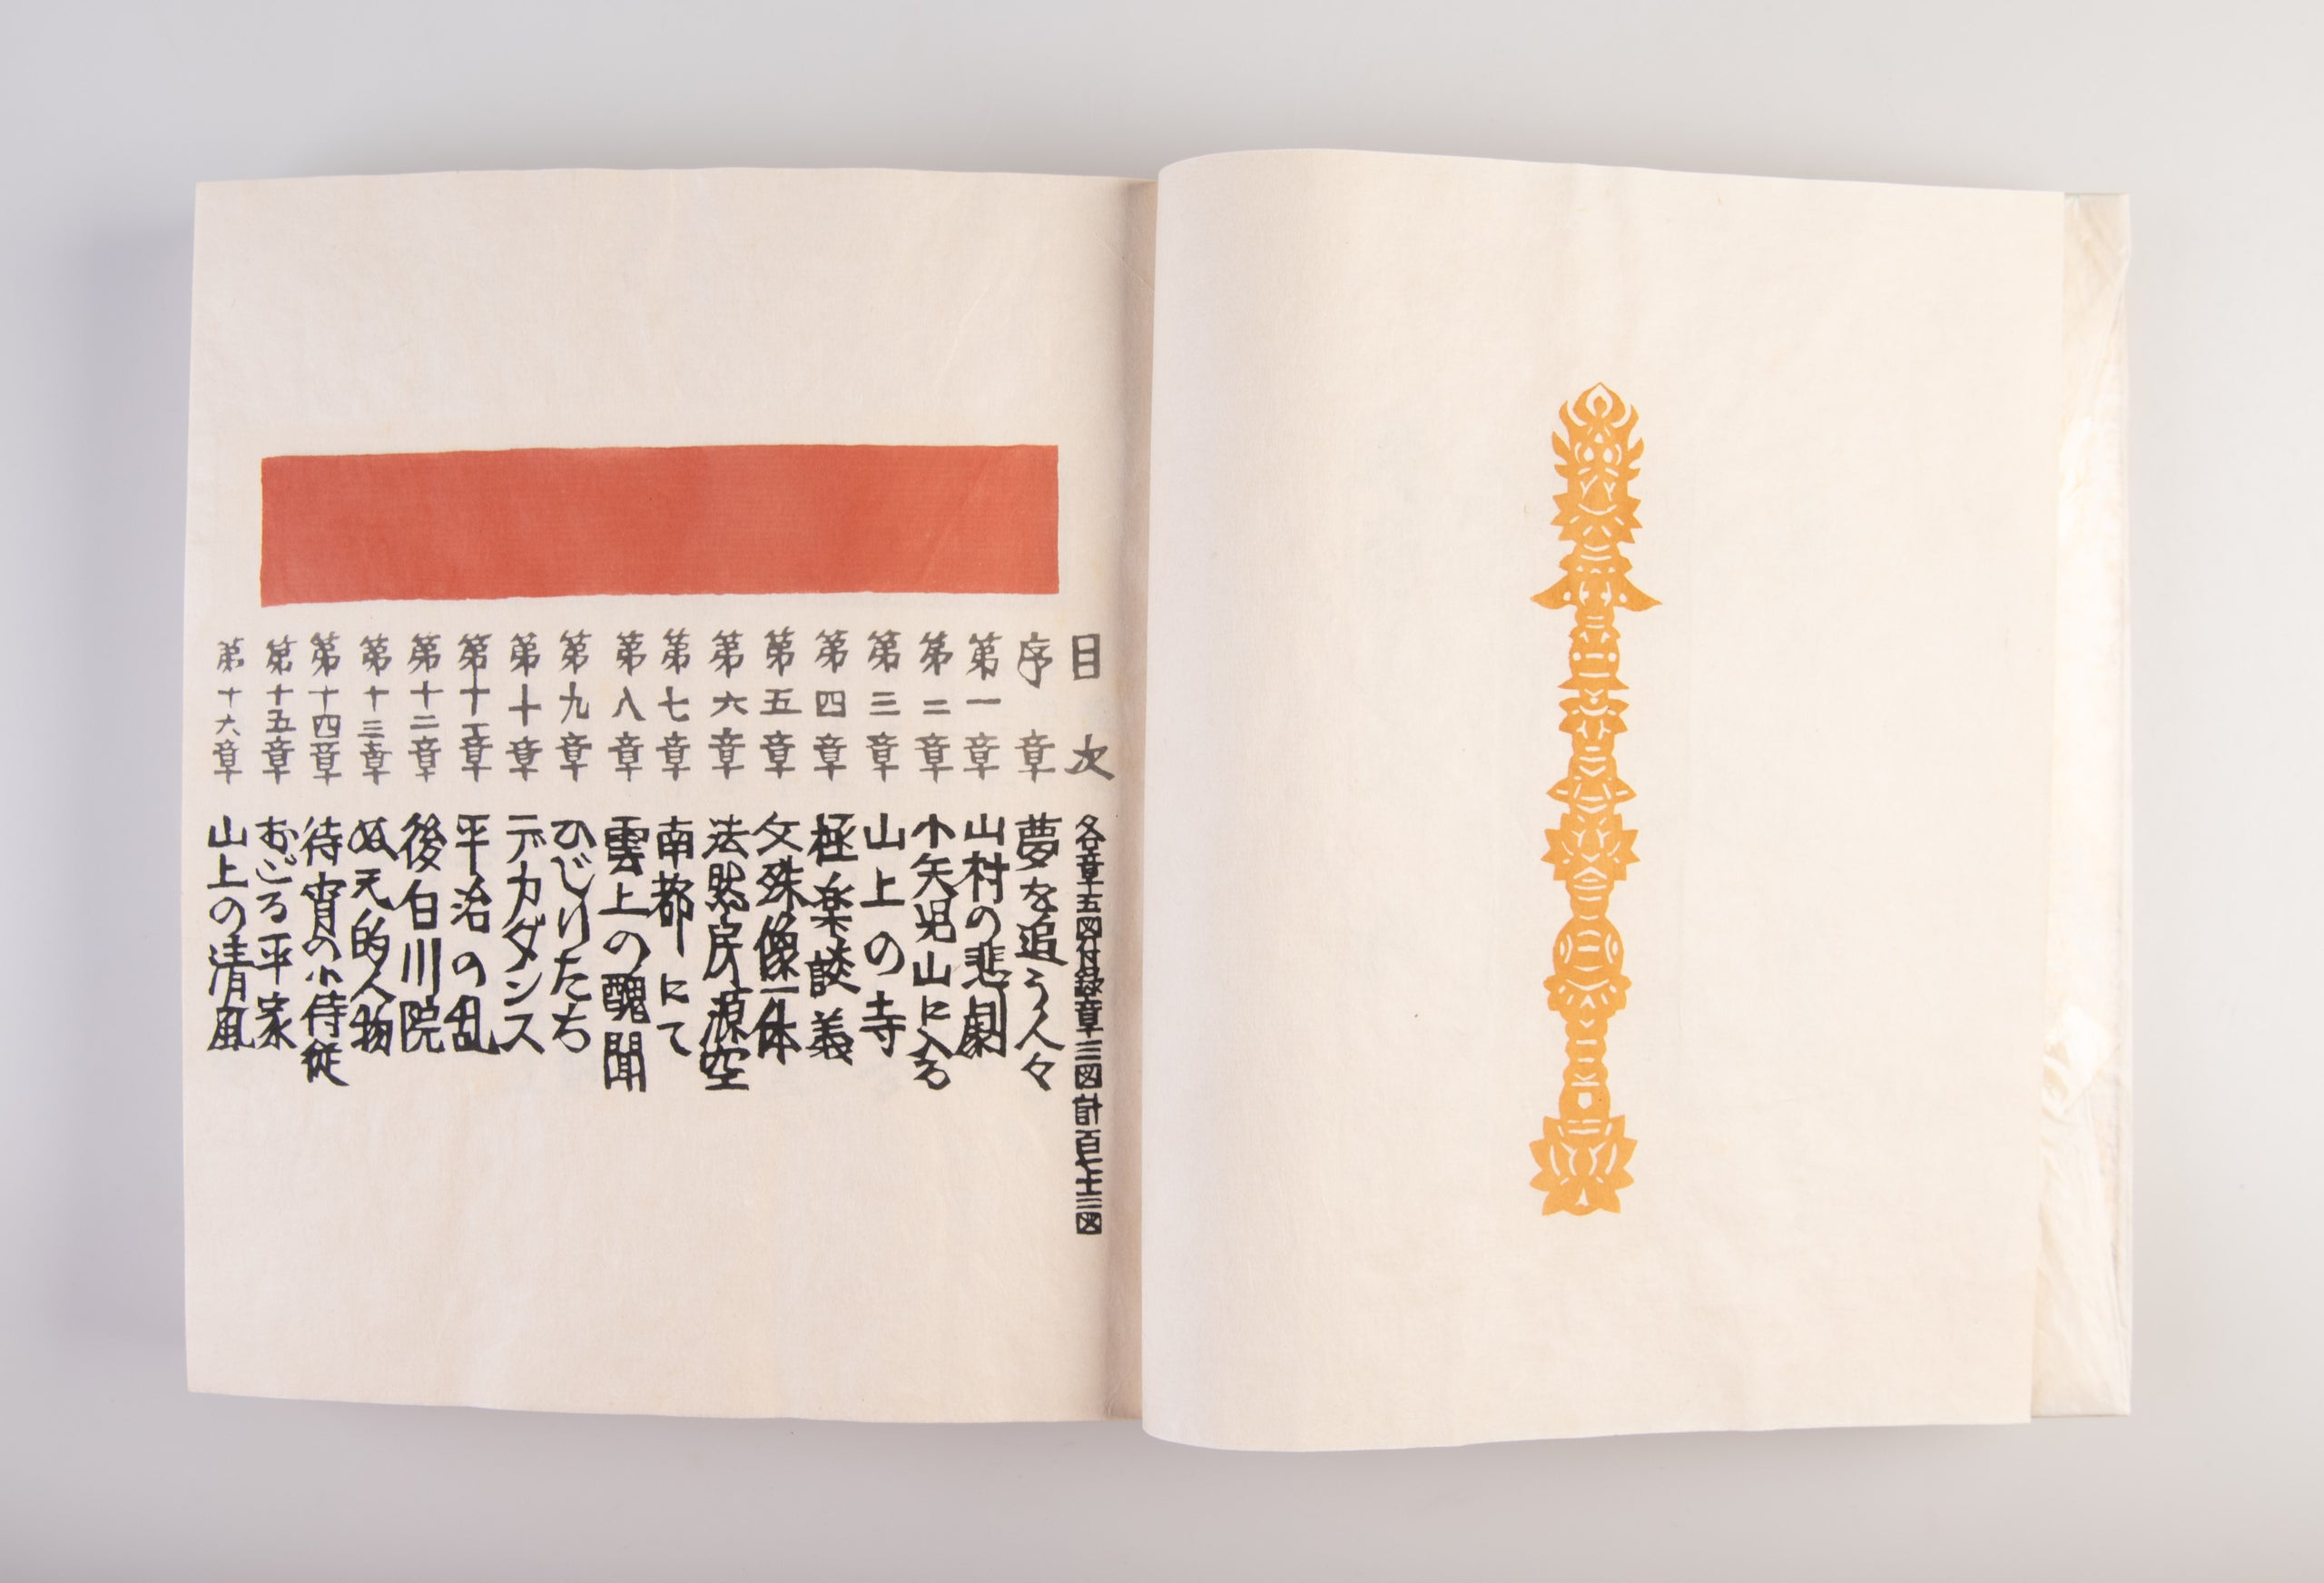 目次 各章五図付録章三図計百七十三図
序章 夢を追う人々
第一章 山村の悲劇
第二章 小矢児山に入る
第三章 山上の寺
第四章 極楽談義
第五章 文殊像一体
第六章 法然房源空
第七章 南都にて
第八章 雲上の醜聞
第九章 ひじりたち
第十章 デカダンス
第十一章 平治の乱
第十二章 後白川院
第十三章 ぬえ的人物
第十四章 待宵の小侍従
第十五章 おごる平家
第十六章 山上の清風